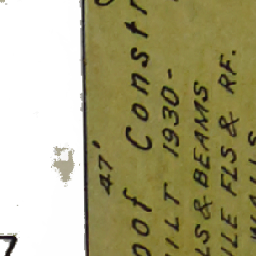 47'
oof Constr
ILT 1930-
LS & BEAMS
ILE FLS & RF.
WALLS
7